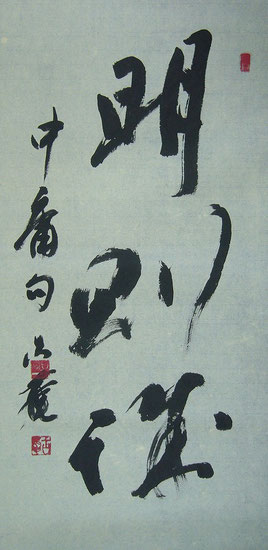 明則誠
中庸句